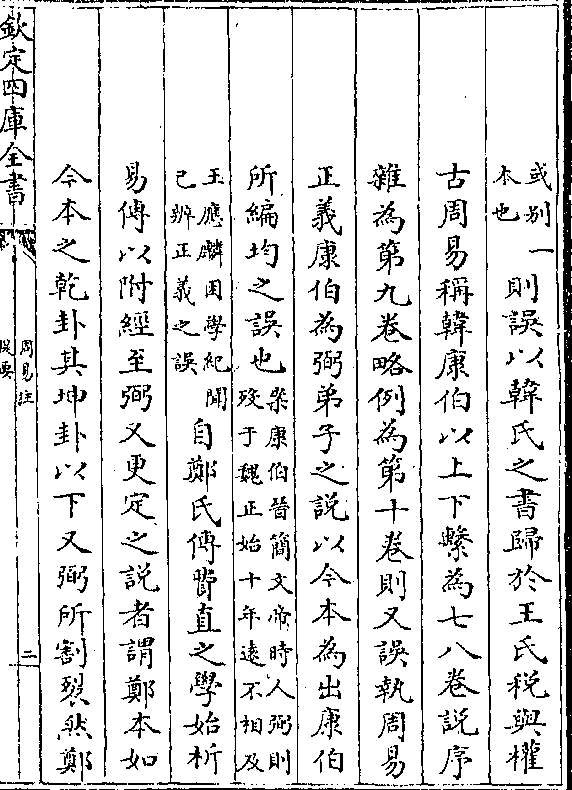 或别一
本也
則誤以韓氏之書歸於王氏税與權
古周易稱韓康伯以上下繫為七八卷説序
雜為第九卷略例為第十卷則又誤執周易
正義康伯為弼弟子之説以今本為出康伯
所編均之誤也
案康伯晉簡文帝時人弼則
殁于魏正始十年逺不相及
王應麟困學紀聞
已辨正義之誤
自鄭氏傳費直之學始析
易傳以附經至弼又更定之説者謂鄭本如
今本之乾卦其坤卦以下又弼所割裂然鄭
欽定四庫全書
周易註
提要
二